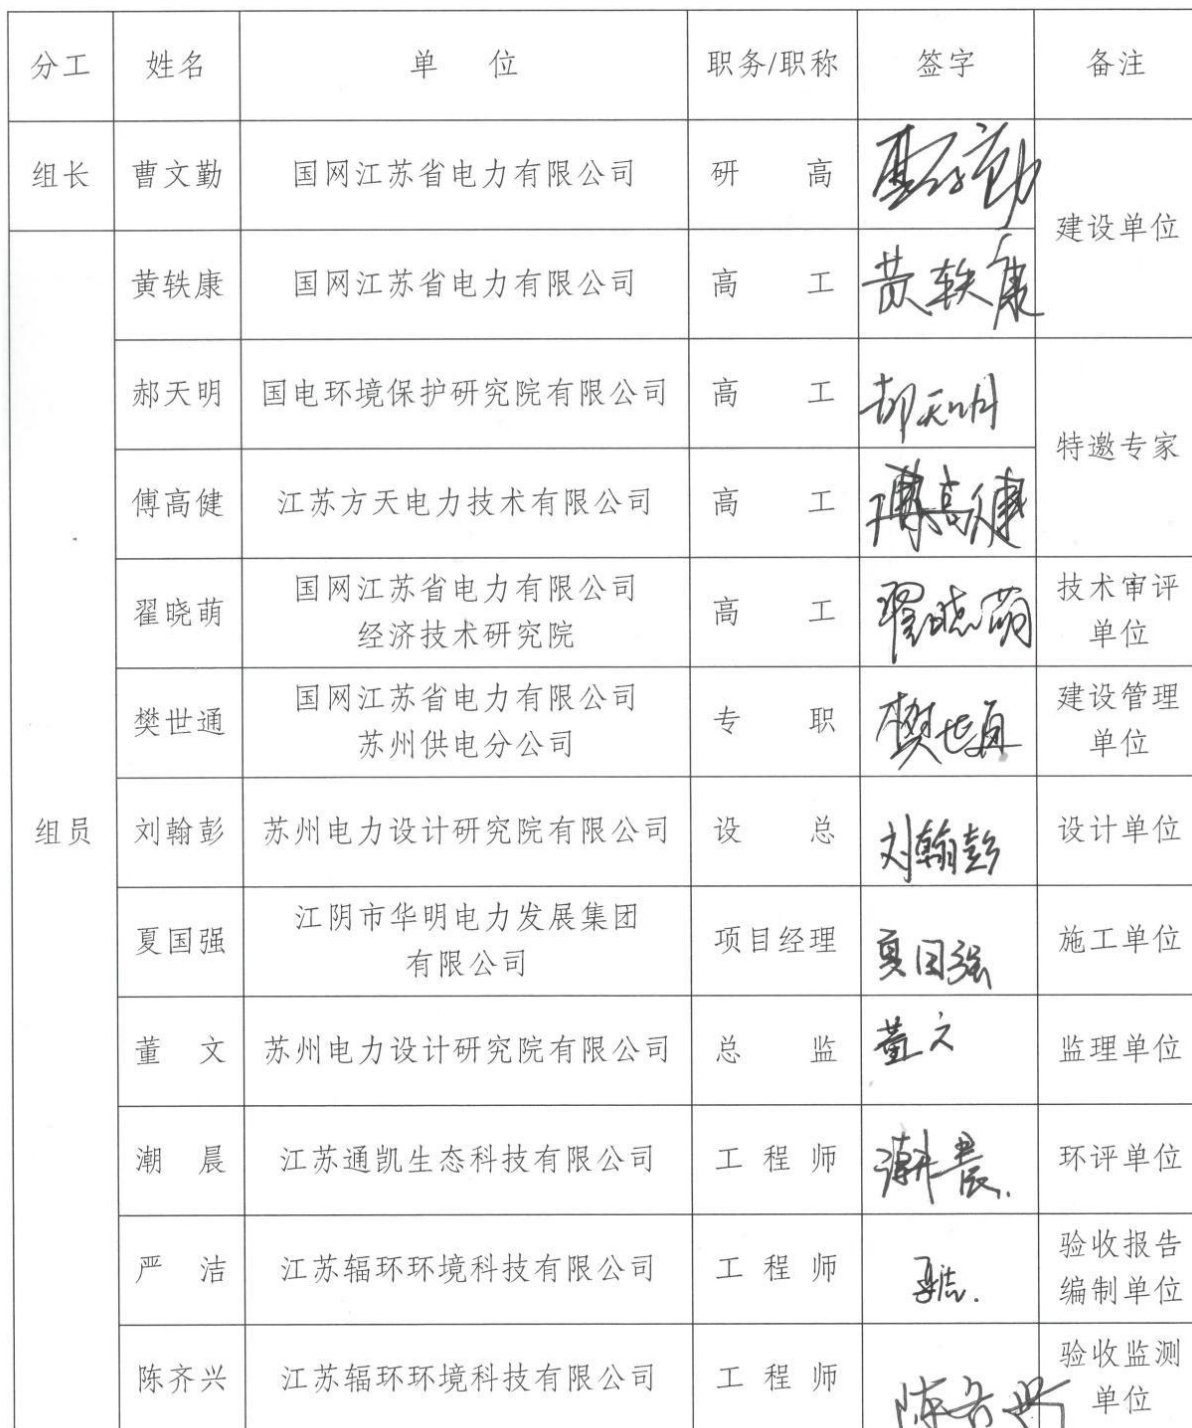 分工 姓名 单 位 职务/职称 签字 备注
组长 曹文勤 国网江苏省电力有限公司 研 高
建设单位
黄轶康 国网江苏省电力有限公司 高 工 黄轶康
郝天明 国电环境保护研究院有限公司 高 工 郝天明
特邀专家
傅高健 江苏方天电力技术有限公司 高 工 傅高健
翟晓萌 国网江苏省电力有限公司 高 工 翟晓萌 技术审评
经济技术研究院 单位
樊世通 国网江苏省电力有限公司 专 职 樊世通 建设管理
苏州供电分公司 单位
组员 刘翰彭 苏州电力设计研究院有限公司 设 总 刘翰彭 设计单位
夏国强 江阴市华明电力发展集团 项目经理 夏国强 施工单位
有限公司
董 文 苏州电力设计研究院有限公司 总 监 董文 监理单位
潮 晨 江苏通凯生态科技有限公司 工 程 师 潮晨 环评单位
严 洁 江苏辐环环境科技有限公司 工 程 师 严洁 验收报告
编制单位
陈齐兴 江苏辐环环境科技有限公司 工 程 师 陈齐兴 验收监测
单位